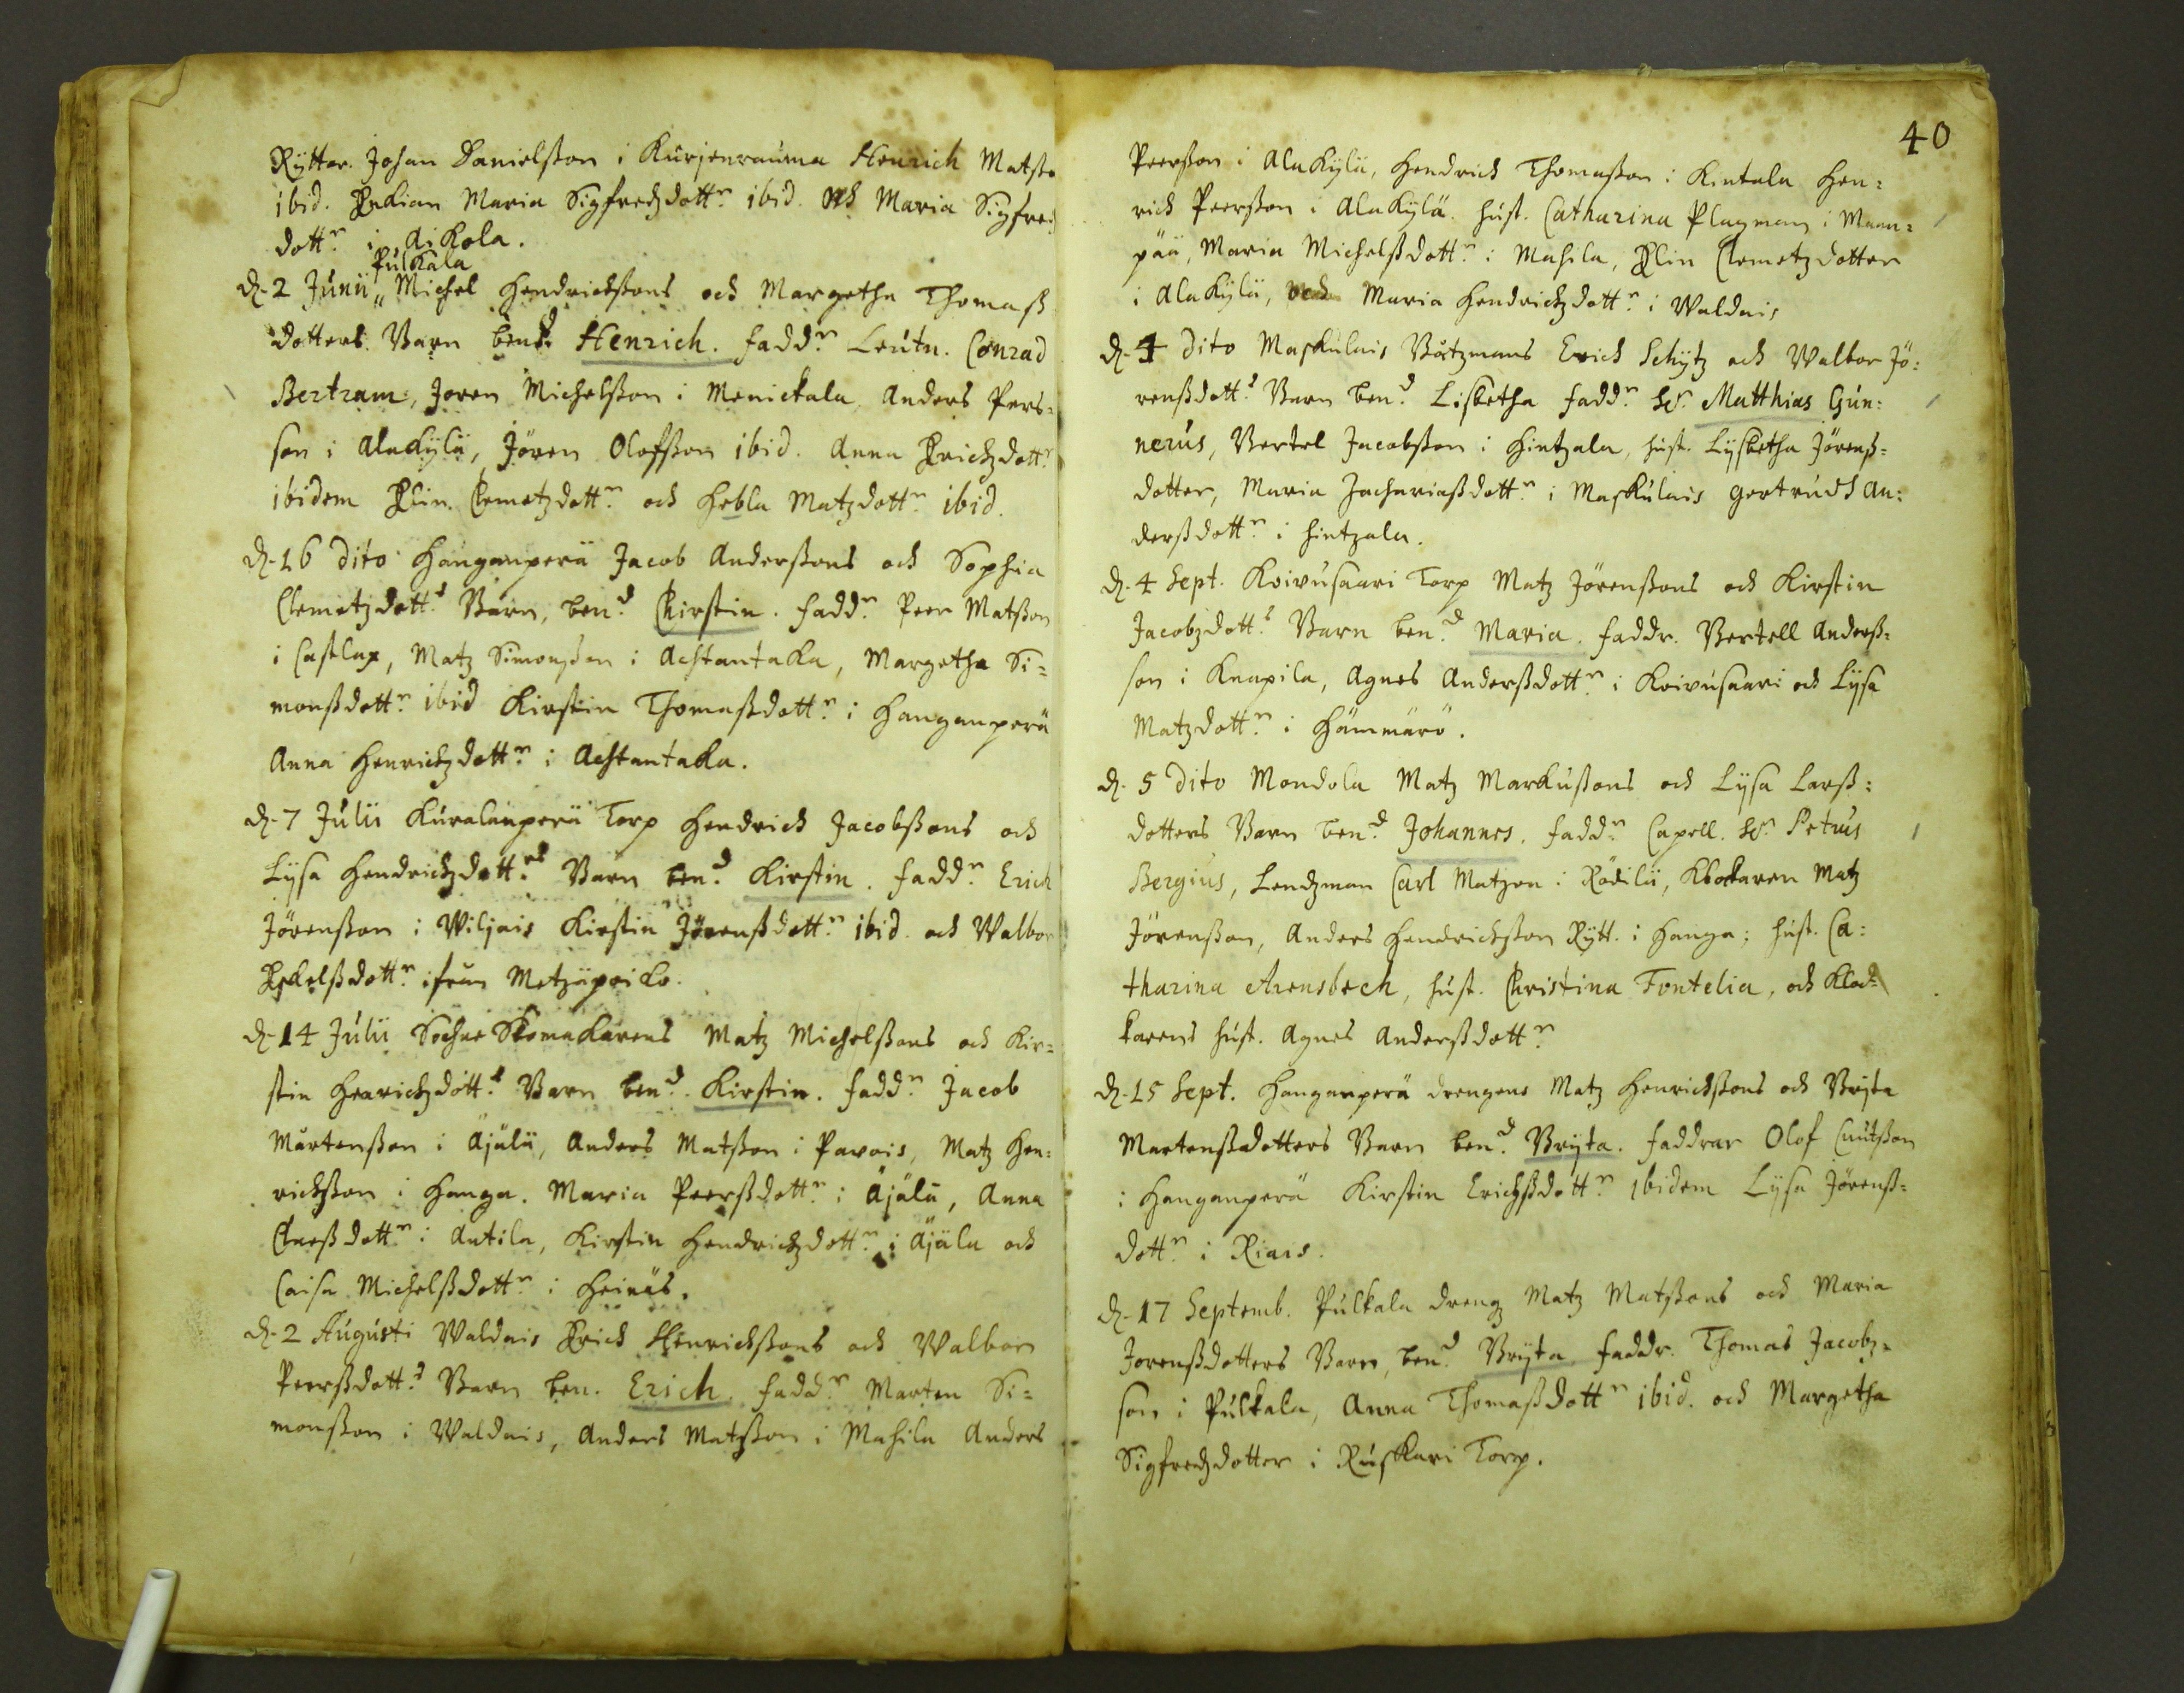 Ryttar. Johan Danielsson i Kurjenrauma Henrich Matss
ibid. Pigan Maria Sigfredzdottr. ibid. och Maria Sigfred
dottr. i Aikola.
Pulkala
d. 2 Junii Michel Hendrichssons och Margetha Thomass
dotters Barn bend. Henrich. faddr. Leutn. Conrad
Bertram, Joren Michelsson i Menickala Anders Pers=
son i Alakylä, Jören Olofsson ibid. Anna Erichzdottr
ibidem Elin Clemetzdottr. och Hebla Matzdottr ibid.
d. 16 dito Hanganperä Jacob Anderssons och Sophia
Clemetzdotts. Barn, bend. Chirstin. faddr. Peer Matsson
i Castlax, Matz Simonsson i Achtantaka, Margetha Si=
monssdottr. ibid Kirstin Thomassdottr. i Hanganperä
Anna Henrichzdottr. i Achtantaka.
d. 7 Julii Kuralanperä Torp Hendrich Jacobssons och
Lysa Hendrichzdottrs Barn bend. Kirstin. faddr. Erich
Jörensson i Wiljais Kirstin Jörenssdottr. ibid. och Walbor
Eskelssdottr. ifrån Metzäpeiko.
d. 14 Julii Sochne Skomakarens Matz Michelssons och Kir=
stin Henrichzdotts Barn bend. Kirstin. faddr. Jacob
Mårtensson i Äjälä, Anders Matsson i Pavois, Matz Hen=
richsson i Hanga. Maria Peerssdottr. i Äjälä, Anna
Claessdottr. i Antila, Kirstin Hendrichzdottr. i Äjäla och
Caisa Michelssdottr. i Heinäs.
d. 2 Augusti Waldais Erich Henrichssons och Walbor
Peerssdotts. Barn ben. Erich. faddr. Marten Si=
monsson i Waldais, Anders Matsson i Mahila Anders
40
Peersson i Alakylä, Hendrich Thomasson i Kintala Hen=
rich Peersson i Alakylä. hust. Catharina Plagman i Maan=
pää, Maria Michelssdottr. i Mahila, Elin Clemetzdotter
i Alakylä, och Maria Hendrichzdottr. i Waldais
d. 4 dito Maskulais Båtzmans Erich Schytz och Walbor Jö=
renssdotts. Barn bend. Lisbetha faddr. Hr. Matthias Gun=
nerus, Bertel Jacobsson i Hintzala, hust. Lysbetha Jörenss=
dotter, Maria Zachariassdottr. i Maskulais Gertrudh An=
derssdottr. i Hintzala.
d. 4 Sept. Koivusaari Torp Matz Jörenssons och Kirstin
Jacobzdotts. Barn bend. Maria. faddr. Bertell Anderss=
son i Knapila, Agnes Anderssdottr. i Koivusaari och Lysa
Matzdottr. i Hämmärö.
d. 5 dito Mondola Matz Markussons och Lysa Larss=
dotters Barn bend. Johannes. faddr. Capell. Hr. Petrus
Bergius, Lendzman Carl Matzon i Rödilä, Klockaren Matz
Jörensson, Anders Hendrichsson Rytt. i Hanga; hust. Ca=
tharina Arensbech, hust. Christina Fontelia, och Kloc=
karens hust. Agnes Anderssdottr.
d. 15 Sept. Hanganperä drengens Matz Henrichssons och Bryta
Martenssdotters Barn bend. Bryta. faddrar Olof Cnutsson
i Hanganperä Kirstin Erichssdottr. ibidem Lysa Jörenss=
dottr. i Riais.
d. 17 Septemb. Pulkala dreng Matz Matssons och Maria
Jorenssdotters Barn, bend. Bryta faddr. Thomas Jacobz=
son i Pulkala, Anna Thomassdottr ibid. och Margetha
Sigfredzdotter i Ruskari Torp.